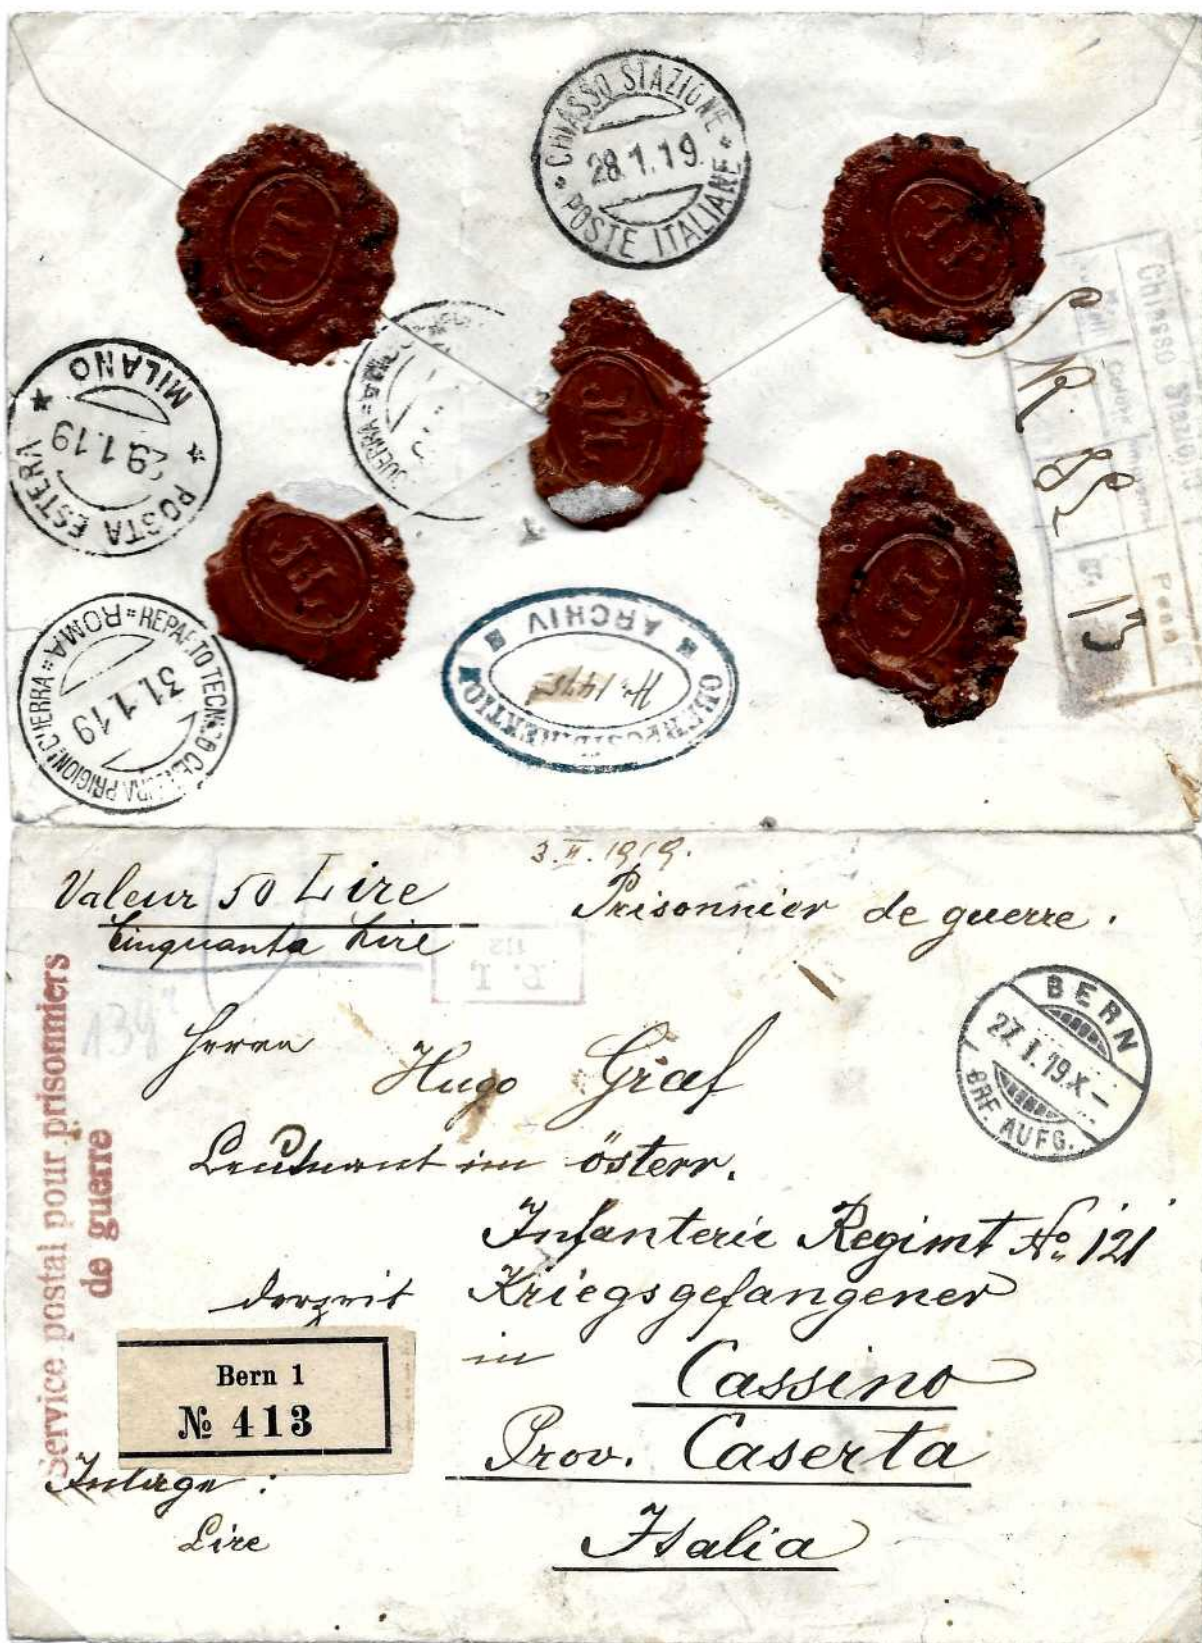 * CHIASSO STAZIONE *
28.1.19.
POSTE ITALIANE
Chiasso Stazione
Peso
R 82
13
MILANO
29.1.19
* POSTA ESTERA *
GUERRA =
REPARTO TECNICO CENSURA PRIGION. GUERRA = ROMA =
31.1.19
OBERPOSTDIREKTION
ARCHIV
3. II. 1919.
Valeur 50 Lire
Cinquanta Lire
Prisonnier de guerre.
P. I.
112
139
Service postal pour prisonniers
de guerre
BERN
27.I.19.X–
BRF. AUFG.
Herrn
Hugo Graf
Leutnant im österr.
Infanterie Regimt No. 121
derzeit Kriegsgefangener
in Cassino
Prov. Caserta
Italia
Bern 1
№ 413
Inlage:
Lire